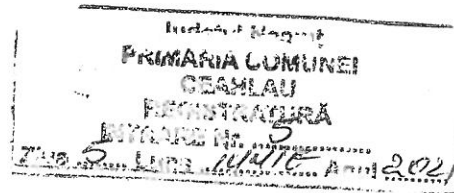 Județul Neamț
PRIMĂRIA COMUNEI
CEAHLĂU
REGISTRATURĂ
INTRARE Nr. 5
Ziua 5 Luna IUNIE Anul 2021